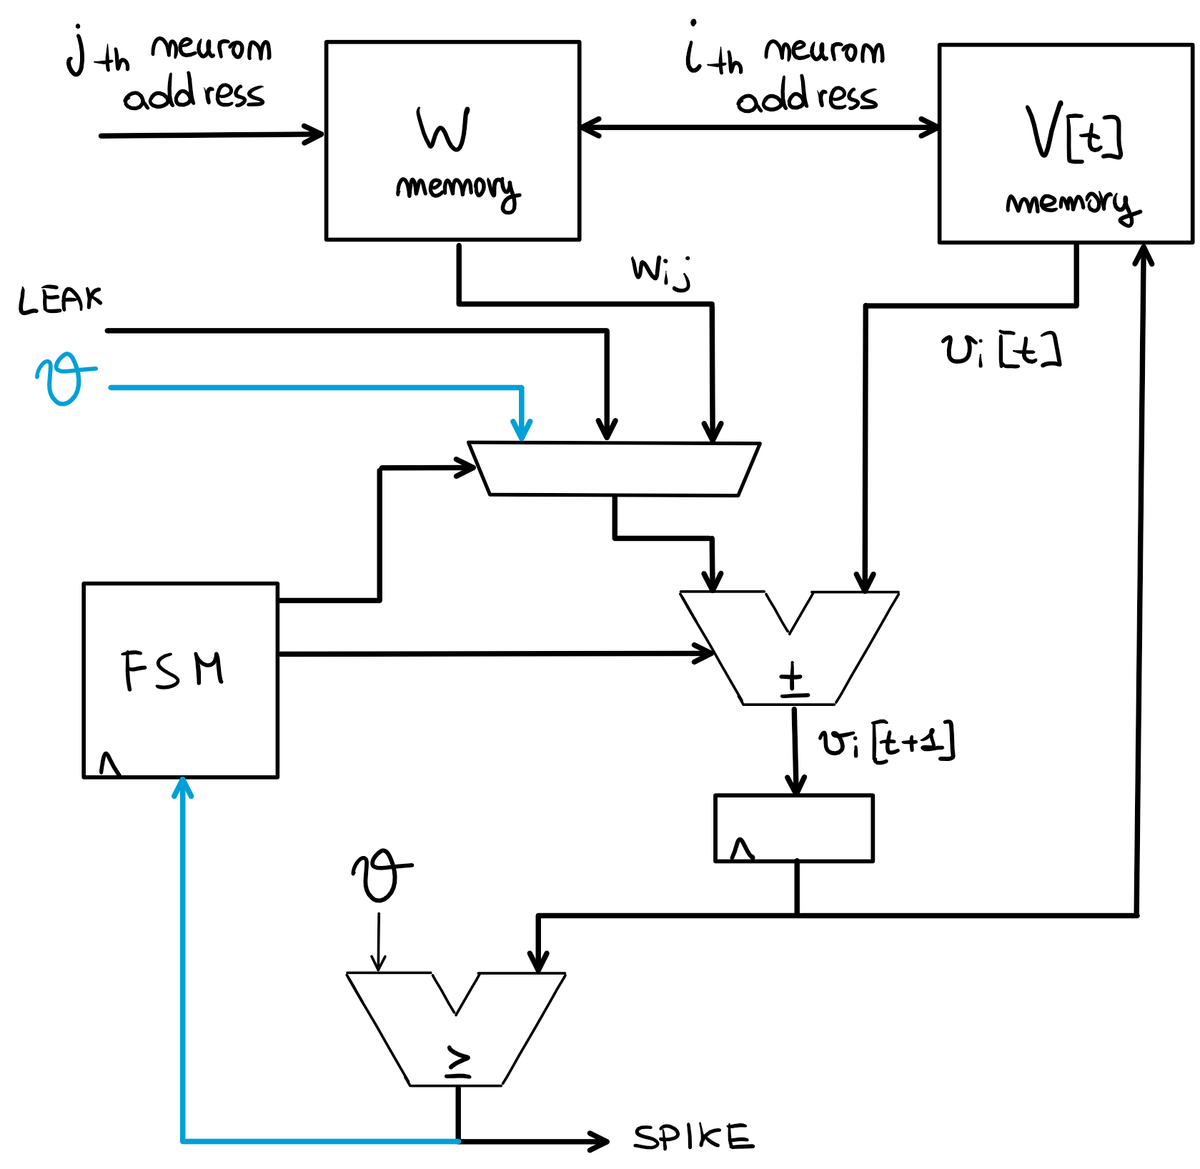 j-th neuron
address
W
memory
i-th neuron
address
V[t]
memory
wij
LEAK
ϑ
vi[t]
FSM
±
vi[t+1]
ϑ
≥
SPIKE